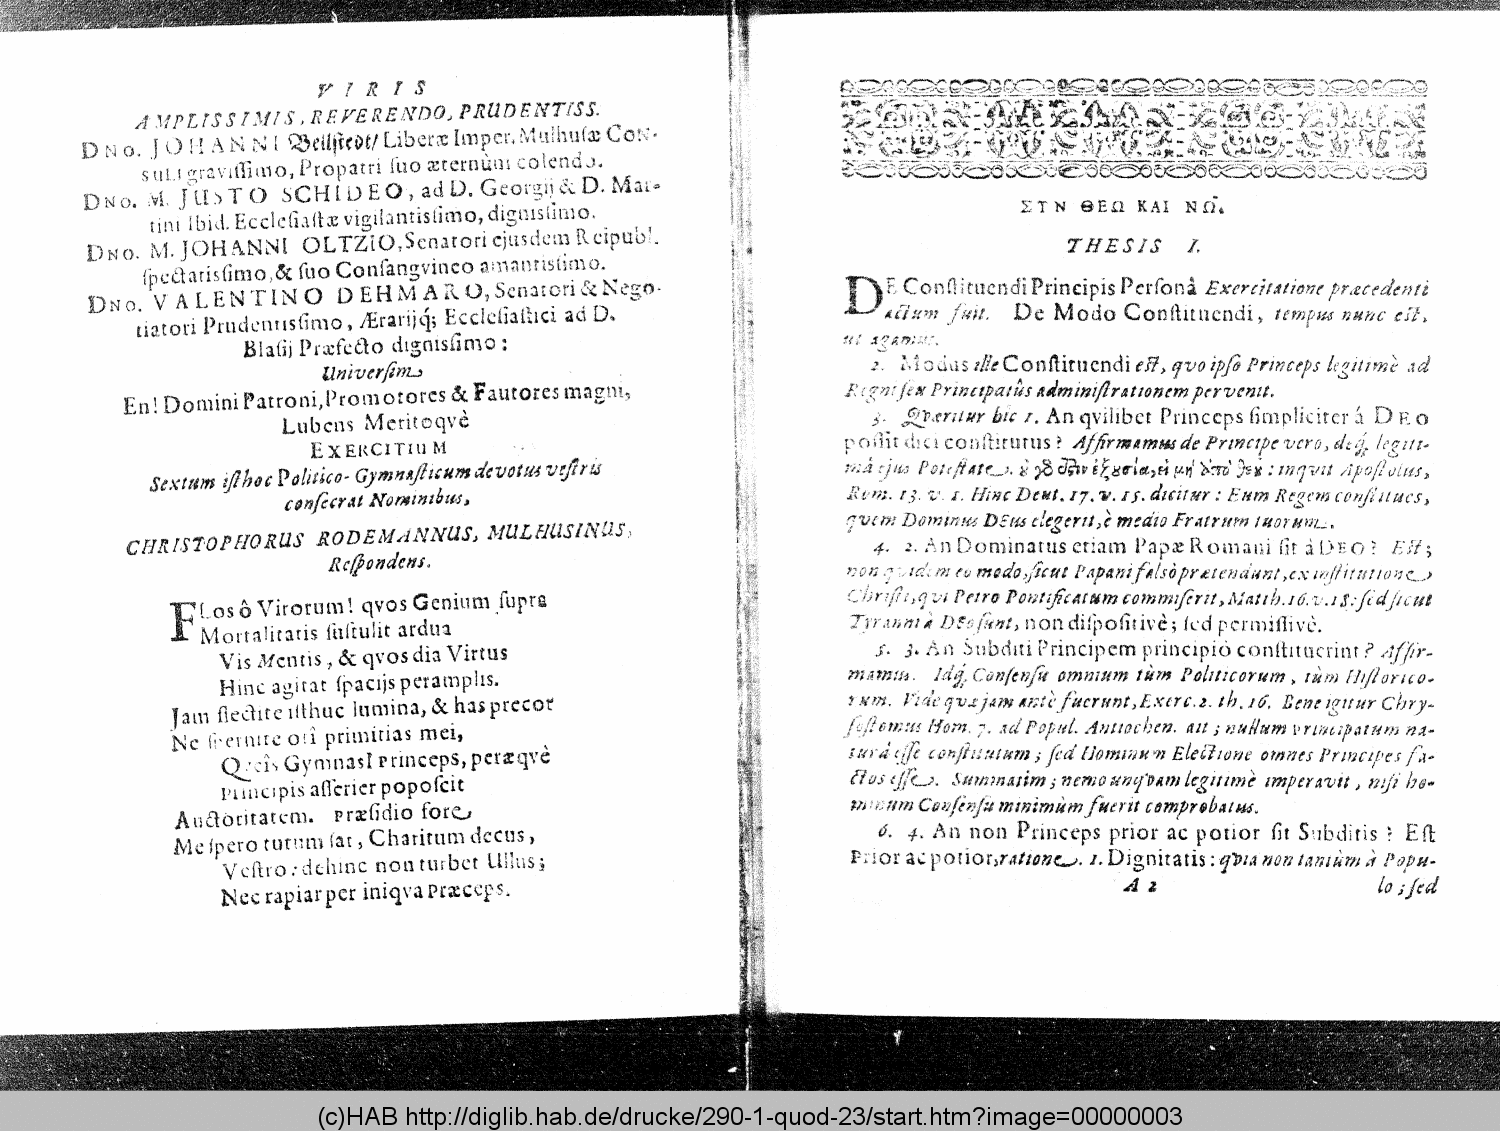 VIRIS
AMPLISSIMIS, REVERENDO, PRUDENTISS.
DNO. JOHANNI Beilſtedt/ Liberæ Imper. Mulhuſæ CON-
SULI graviſſimo, Propatri ſuo æternùm colendo.
DNO. M. JUSTO SCHIDEO, ad D. Georgij & D. Mar-
tini ibid. Eccleſiaſtæ vigilantisſimo, dignisſimo.
DNO. M. JOHANNI OLTZIO, Senatori ejusdem Reipubl.
ſpectatisſimo, & ſuo Conſangvineo amantisſimo.
DNO. VALENTINO DEHMARO, Senatori & Nego-
tiatori Prudentisſimo, Ærarijq́; Eccleſiaſtici ad D.
Blaſij Præfecto dignisſimo:
Univerſim
En! Domini Patroni, Promotores & Fautores magni,
Lubens Meritoqvè
EXERCITIUM
Sextum iſthoc Politico-Gymnaſticum devotus veſtris
conſecrat Nominibus,
CHRISTOPHORUS RODEMANNUS, MULHUSINUS,
Reſpondens.
FLos ô Virorum! qvos Genium ſupra
Mortalitatis ſuſtulit ardua
Vis Mentis, & qvos dia Virtus
Hinc agitat ſpacijs peramplis.
Jam flectite iſthuc lumina, & has precor
Ne ſpernite oti primitias mei,
Qveis GymnasI Princeps, peræqvè
Principis aſſerier popoſcit
Auctoritatem. Præſidio fore
Me ſpero tutum ſat, Charitum decus,
Veſtro: dehinc non turbet Ullus;
Nec rapiar per iniqva Præceps.
ΣΥΝ ΘΕΩ ΚΑΙ ΝΩ.
THESIS I.
DE Conſtituendi Principis Perſonâ Exercitatione præcedenti
actum fuit. De Modo Conſtituendi, tempus nunc eſt,
ut agamus.
2. Modus ille Conſtituendi eſt, qvo ipſo Princeps legitimè ad
Regni ſeu Principatûs adminiſtrationem pervenit.
3. Qværitur hîc 1. An qvilibet Princeps ſimpliciter á DEO
poſſit dici conſtitutus? Affirmamus de Principe vero, deq́; legiti-
mâ ejus Poteſtate. ὐ γὸ ὅλιν ἐξουσία, εἰ μὴ ἀπὸ θεȣ: inqvit Apoſtolus,
Rom. 13. v. 1. Hinc Deut. 17. v. 15. dicitur: Eum Regem conſtitues,
quem Dominus DEus elegerit, è medio Fratrum tuorum.
4. 2. An Dominatus etiam Papæ Romani ſit á DEO? Eſt;
non quidem eo modo, ſicut Papani falsò prætendunt, ex inſtitutione
Chriſti, qvi Petro Pontificatum commiſerit, Matth. 16. v. 18: ſed ſicut
Tyranni à DEo ſunt, non diſpoſitivè; ſed permiſſivè.
5. 3. An Subditi Principem principiò conſtituerint? Affir-
mamus. Idq́; Conſenſu omnium tùm Politicorum, tùm Hiſtorico-
rum. Vide qvæ jam antè fuerunt, Exerc. 2. th. 16. Bene igitur Chry-
ſoſtomus Hom. 7. ad Popul. Antiochen. ait; nullum principatum na-
turâ eſſe conſtitutum; ſed Hominum Electione omnes Principes fa-
ctos eſſe. Summatim; nemo unqvam legitimè imperavit, niſi ho-
minum Conſenſu minimùm fuerit comprobatus.
6. 4. An non Princeps prior ac potior ſit Subditis? Eſt
Prior ac potior, ratione. 1. Dignitatis: qvia non tantùm à Popu-
A 2
lo; ſed
(c)HAB http://diglib.hab.de/drucke/290-1-quod-23/start.htm?image=00000003